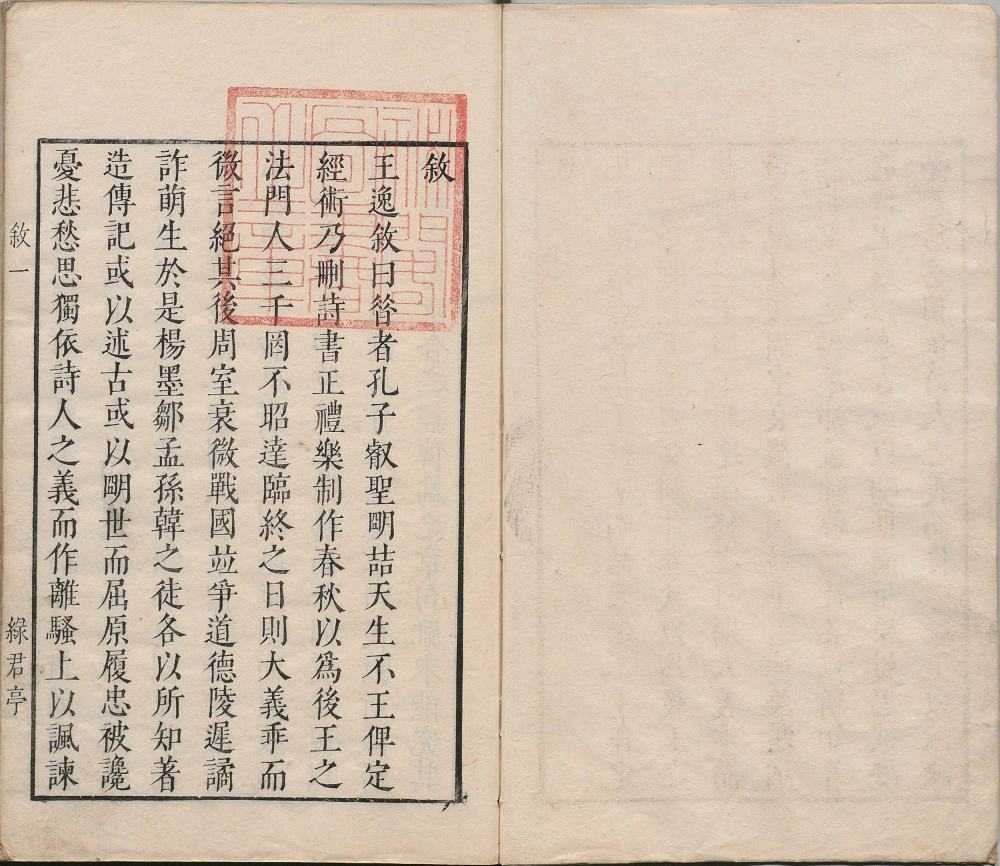 敘
王逸敘曰昝者孔子叡聖朙喆天生不王俾定
經術乃刪詩書正禮樂制作春秋以爲後王之
法門人三千罔不昭達臨終之日則大義乖而
微言絕其後周室衰微戰國竝爭道德陵遲譎
詐萌生於是楊墨鄒孟孫韓之徒各以所知著
造傳記或以述古或以朙世而屈原履忠被讒
憂悲愁思獨依詩人之義而作離騷上以諷諫
敘一
綠君亭